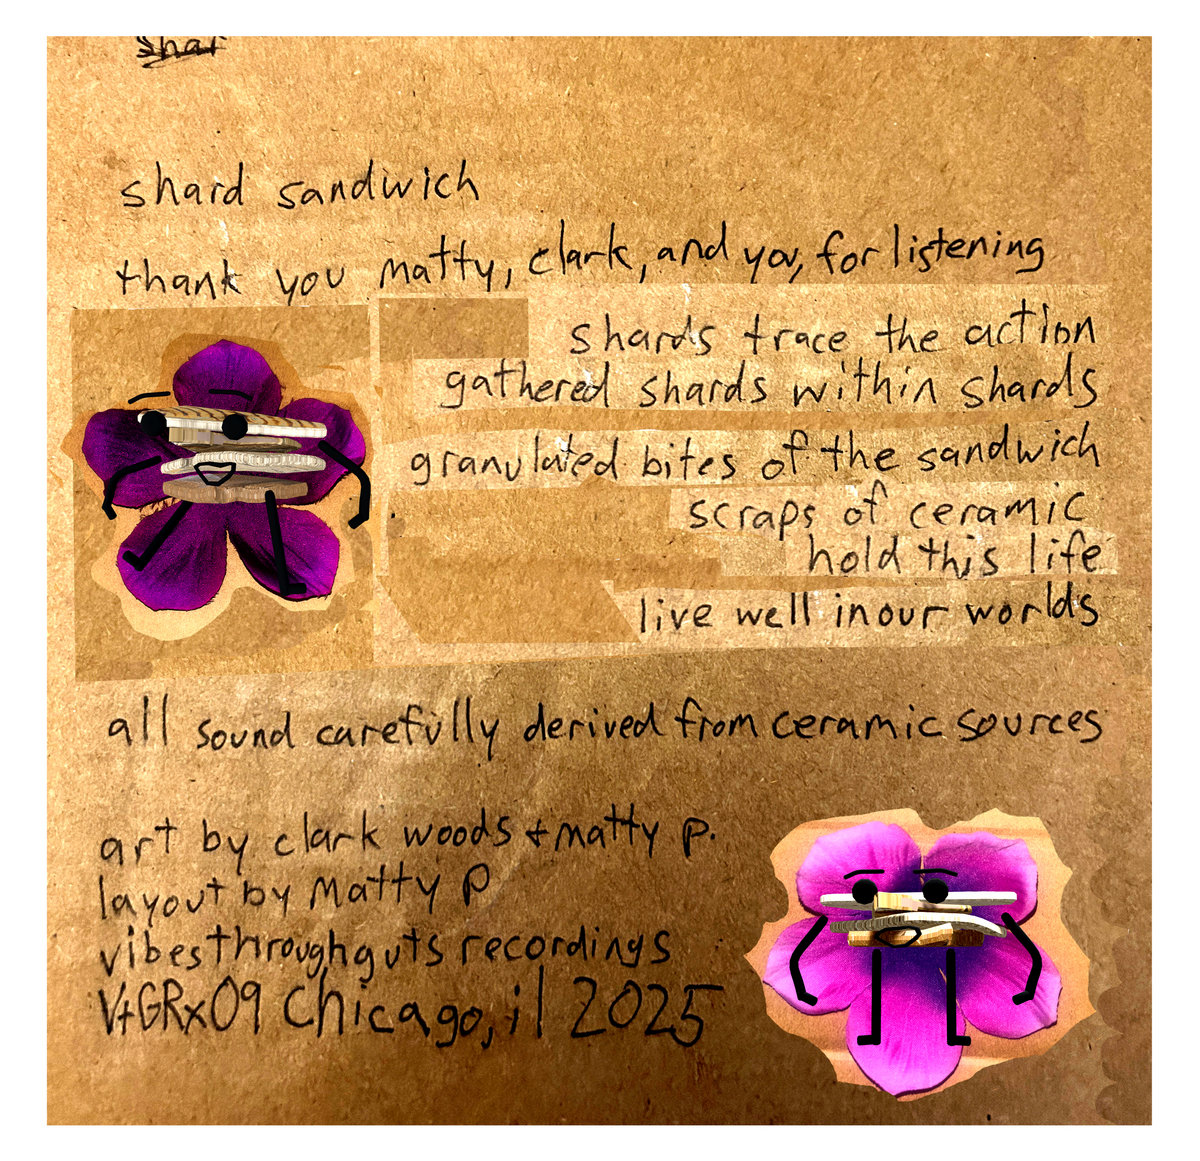 shar
shard sandwich
thank you matty, clark, and you, for listening
shards trace the action
gathered shards within shards
granulated bites of the sandwich
scraps of ceramic
hold this life
live well in our worlds
all sound carefully derived from ceramic sources
art by clark woods + matty p.
layout by Matty P
vibesthroughguts recordings
VtGRx09 Chicago, il 2025